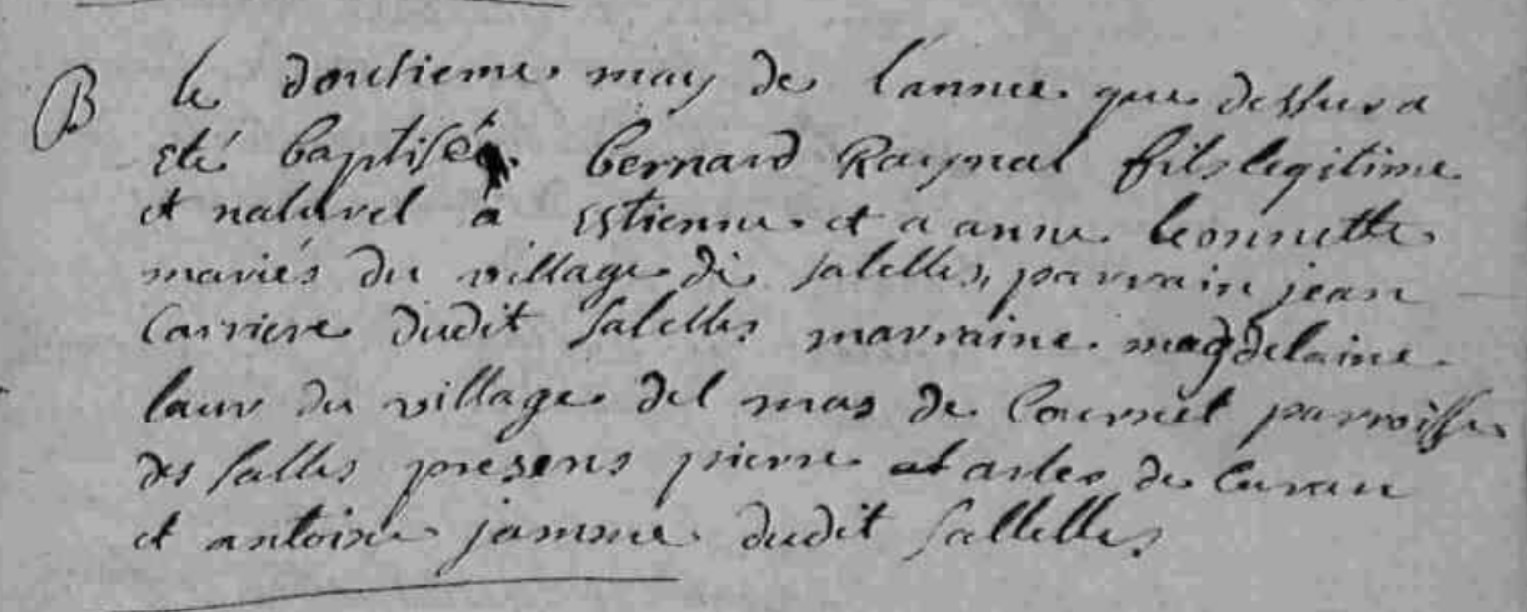 B le doutsieme may de l'annee que dessus a
eté baptisé bernard Raynal fils legitime
et naturel a estienne et a anne leonnette
mariés du village de salelles, parrain jean
Carriere dudit salelles marraine magdelaine
laur du village del mas de Cournet parroisse
des salles presens pierre de Curan
et antoine jamme dudit sallelles